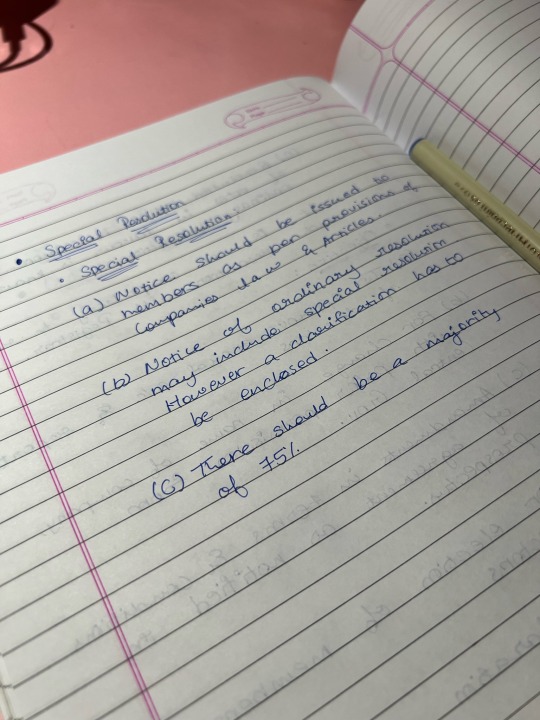 • Special Resolution
• Special Resolution
(a) Notice should be issued to
members as per provisions of
Companies Law & Articles.
(b) Notice of ordinary resolution
may include special resolution
However a clarification has to
be enclosed.
(C) There should be a majority
of 75%